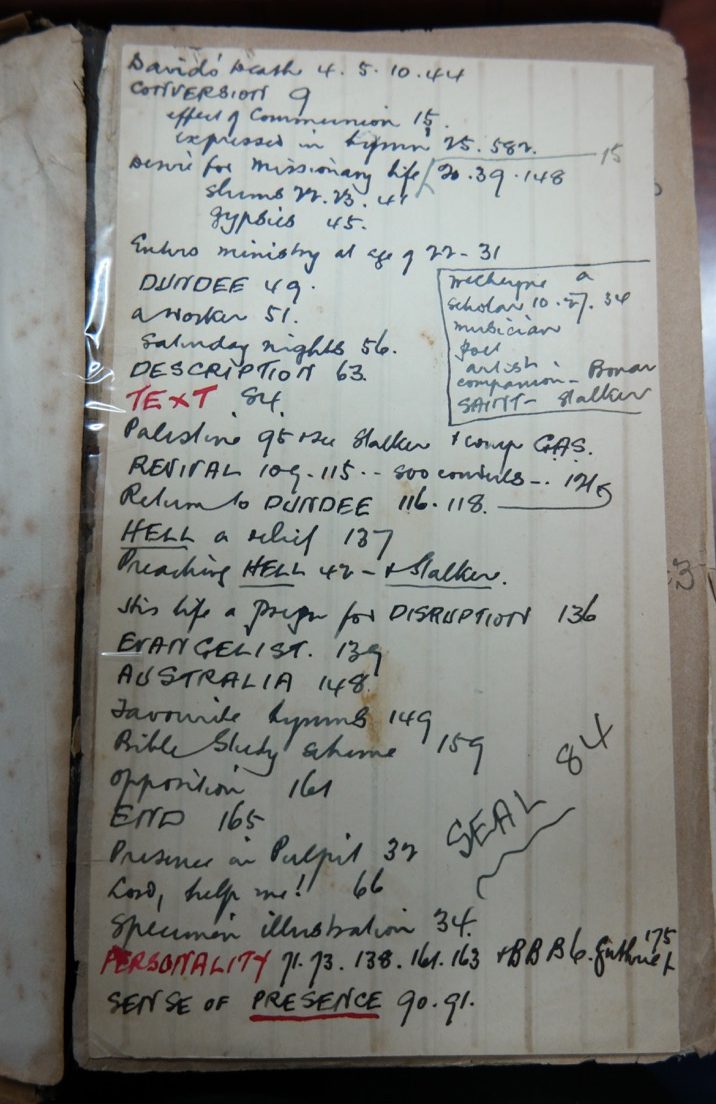 David's Death 4. 5. 10. 44
CONVERSION 9
effect of Communion 15.
expressed in hymn 25. 582.
Desire for missionary life 20. 39. 148
15
slums 22. 23. 41
gypsies 45.
Enters ministry at age of 22 - 31
DUNDEE 49.
a worker 51.
Saturday nights 56.
DESCRIPTION 63.
McCheyne a
scholar 10. 27. 34
musician
poet
artist
companion - Bonar
SAINT - Stalker
TEXT 84.
Palestine 95 + see Stalker + comp GAS.
REVIVAL 109. 115 -- 800 converts --
Return to DUNDEE 116. 118.
HELL a relief 137
Preaching HELL 42 - + Stalker.
His life a for DISRUPTION 136
EVANGELIST. 139
AUSTRALIA 148.
Favourite hymns 149
Bible Study scheme 159
opposition 161
END 165
SEAL 84
Presence in Pulpit 32
Lord, help me!! 66
Specimen illustration 34.
PERSONALITY 71. 73. 138. 161. 163 + BBB6. Guthrie 175
SENSE OF PRESENCE 90. 91.